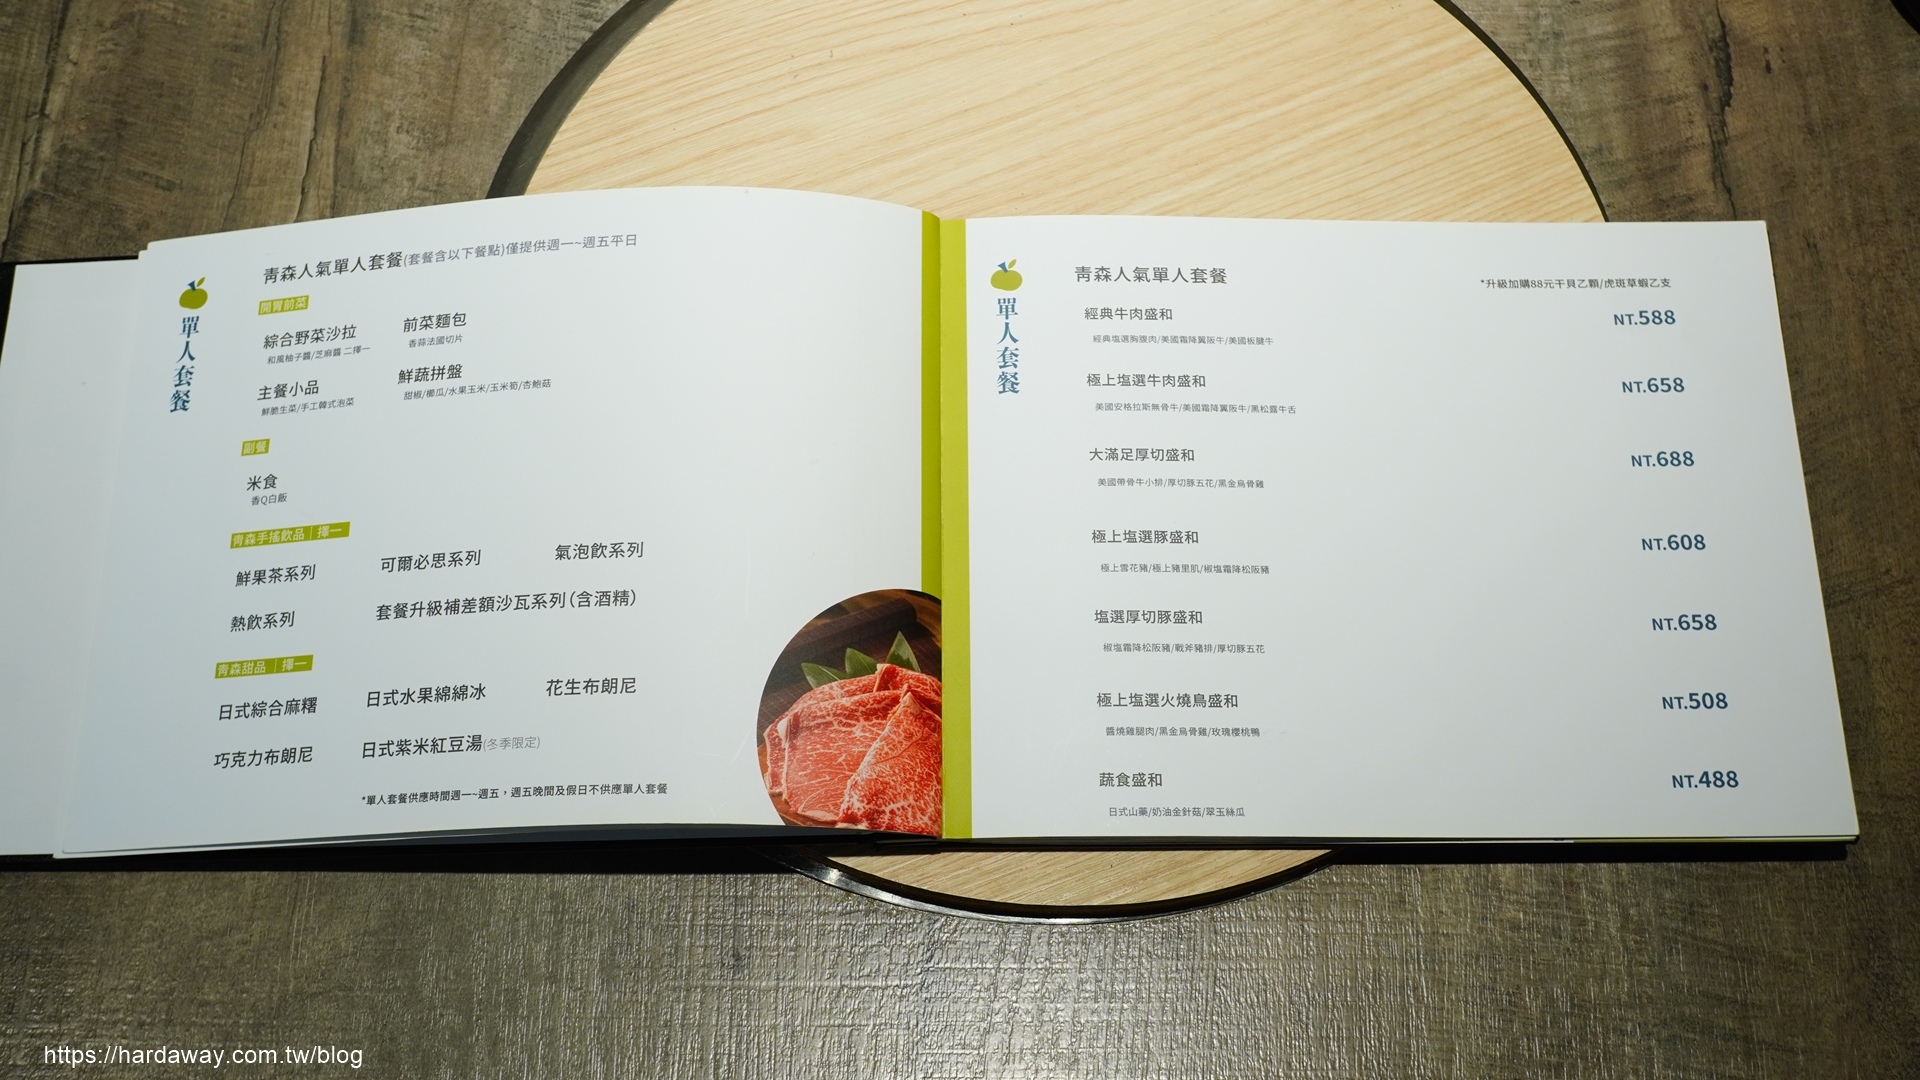 單人套餐
青森人氣單人套餐(套餐含以下餐點)僅提供週一~週五平日
開胃前菜
綜合野菜沙拉
和風柚子醬/芝麻醬 二擇一
前菜麵包
香蒜法國切片
主餐小品
鮮脆生菜/手工韓式泡菜
鮮蔬拼盤
甜椒/櫛瓜/水果玉米/玉米筍/杏鮑菇
副餐
米食
香Q白飯
青森手搖飲品｜擇一
鮮果茶系列
可爾必思系列
氣泡飲系列
熱飲系列
套餐升級補差額沙瓦系列(含酒精)
青森甜品｜擇一
日式綜合麻糬
日式水果綿綿冰
花生布朗尼
巧克力布朗尼
日式紫米紅豆湯(冬季限定)
*單人套餐供應時間週一~週五，週五晚間及假日不供應單人套餐
單人套餐
青森人氣單人套餐
*升級加購88元干貝乙顆/虎斑草蝦乙支
經典牛肉盛和
NT.588
經典塩選胸腹肉/美國霜降翼阪牛/美國板腱牛
極上塩選牛肉盛和
NT.658
美國安格拉斯無骨牛/美國霜降翼阪牛/黑松露牛舌
大滿足厚切盛和
NT.688
美國帶骨牛小排/厚切豚五花/黑金烏骨雞
極上塩選豚盛和
NT.608
極上雪花豬/極上豬里肌/椒塩霜降松阪豬
塩選厚切豚盛和
NT.658
椒塩霜降松阪豬/戰斧豬排/厚切豚五花
極上塩選火燒鳥盛和
NT.508
醬燒雞腿肉/黑金烏骨雞/玫瑰櫻桃鴨
蔬食盛和
NT.488
日式山藥/奶油金針菇/翠玉絲瓜
https://hardaway.com.tw/blog